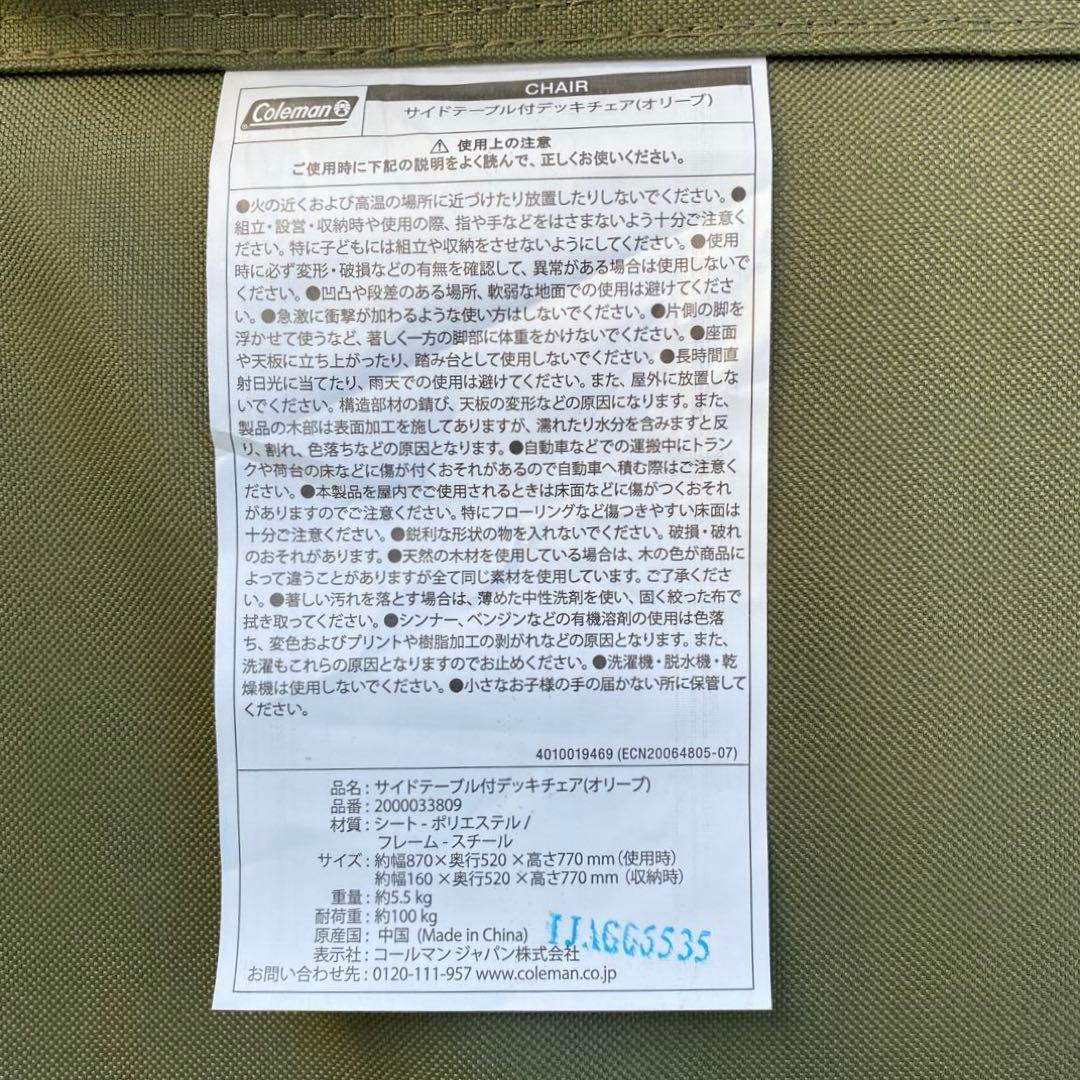 Coleman
CHAIR
サイドテーブル付デッキチェア(オリーブ)
⚠ 使用上の注意
ご使用時に下記の説明をよく読んで、正しくお使いください。
●火の近くおよび高温の場所に近づけたり放置したりしないでください。●
組立・設営・収納時や使用の際、指や手などをはさまないよう十分ご注意く
ださい。特に子どもには組立や収納をさせないようにしてください。●使用
時に必ず変形・破損などの有無を確認して、異常がある場合は使用しないで
ください。●凹凸や段差のある場所、軟弱な地面での使用は避けてくださ
い。●急激に衝撃が加わるような使い方はしないでください。●片側の脚を
浮かせて使うなど、著しく一方の脚部に体重をかけないでください。●座面
や天板に立ち上がったり、踏み台として使用しないでください。●長時間直
射日光に当てたり、雨天での使用は避けてください。また、屋外に放置しな
いでください。構造部材の錆び、天板の変形などの原因になります。また、
製品の木部は表面加工を施してありますが、濡れたり水分を含みますと反
り、割れ、色落ちなどの原因となります。●自動車などでの運搬中にトラン
クや荷台の床などに傷が付くおそれがあるので自動車へ積む際はご注意く
ださい。●本製品を屋内でご使用されるときは床面などに傷がつくおそれ
がありますのでご注意ください。特にフローリングなど傷つきやすい床面は
十分ご注意ください。●鋭利な形状の物を入れないでください。破損・破れ
のおそれがあります。●天然の木材を使用している場合は、木の色が商品に
よって違うことがありますが全て同じ素材を使用しています。ご了承くださ
い。●著しい汚れを落とす場合は、薄めた中性洗剤を使い、固く絞った布で
拭き取ってください。●シンナー、ベンジンなどの有機溶剤の使用は色落
ち、変色およびプリントや樹脂加工の剥がれなどの原因となります。また、
洗濯もこれらの原因となりますのでお止めください。●洗濯機・脱水機・乾
燥機は使用しないでください。●小さなお子様の手の届かない所に保管して
ください。
4010019469 (ECN20064805-07)
品名：サイドテーブル付デッキチェア(オリーブ)
品番：2000033809
材質：シート - ポリエステル /
フレーム - スチール
サイズ：約幅870×奥行520×高さ770 mm（使用時）
約幅160×奥行520×高さ770 mm（収納時）
重量：約5.5 kg
耐荷重：約100 kg
原産国：中国 (Made in China)
表示社：コールマン ジャパン株式会社
お問い合わせ先：0120-111-957 www.coleman.co.jp